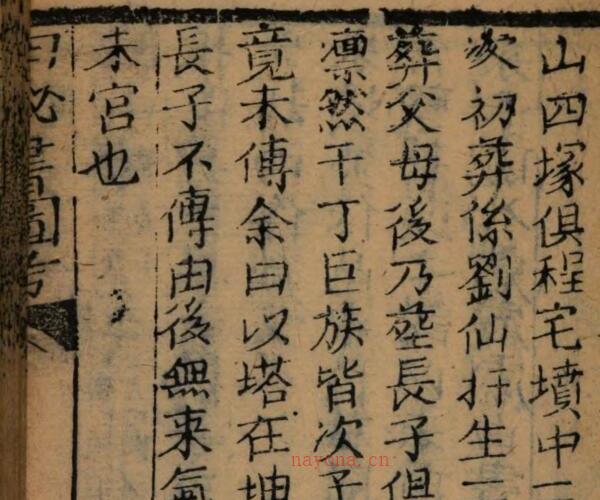 山四塚俱程宅墳中一
次初葬係劉仙扦生一
葬父母後乃塟長子俱
凛然干丁巨族皆次子
竟未傳余曰以塔在坤
長子不傳由後無来氣
未宫也
秘書圖考
nayona.cn